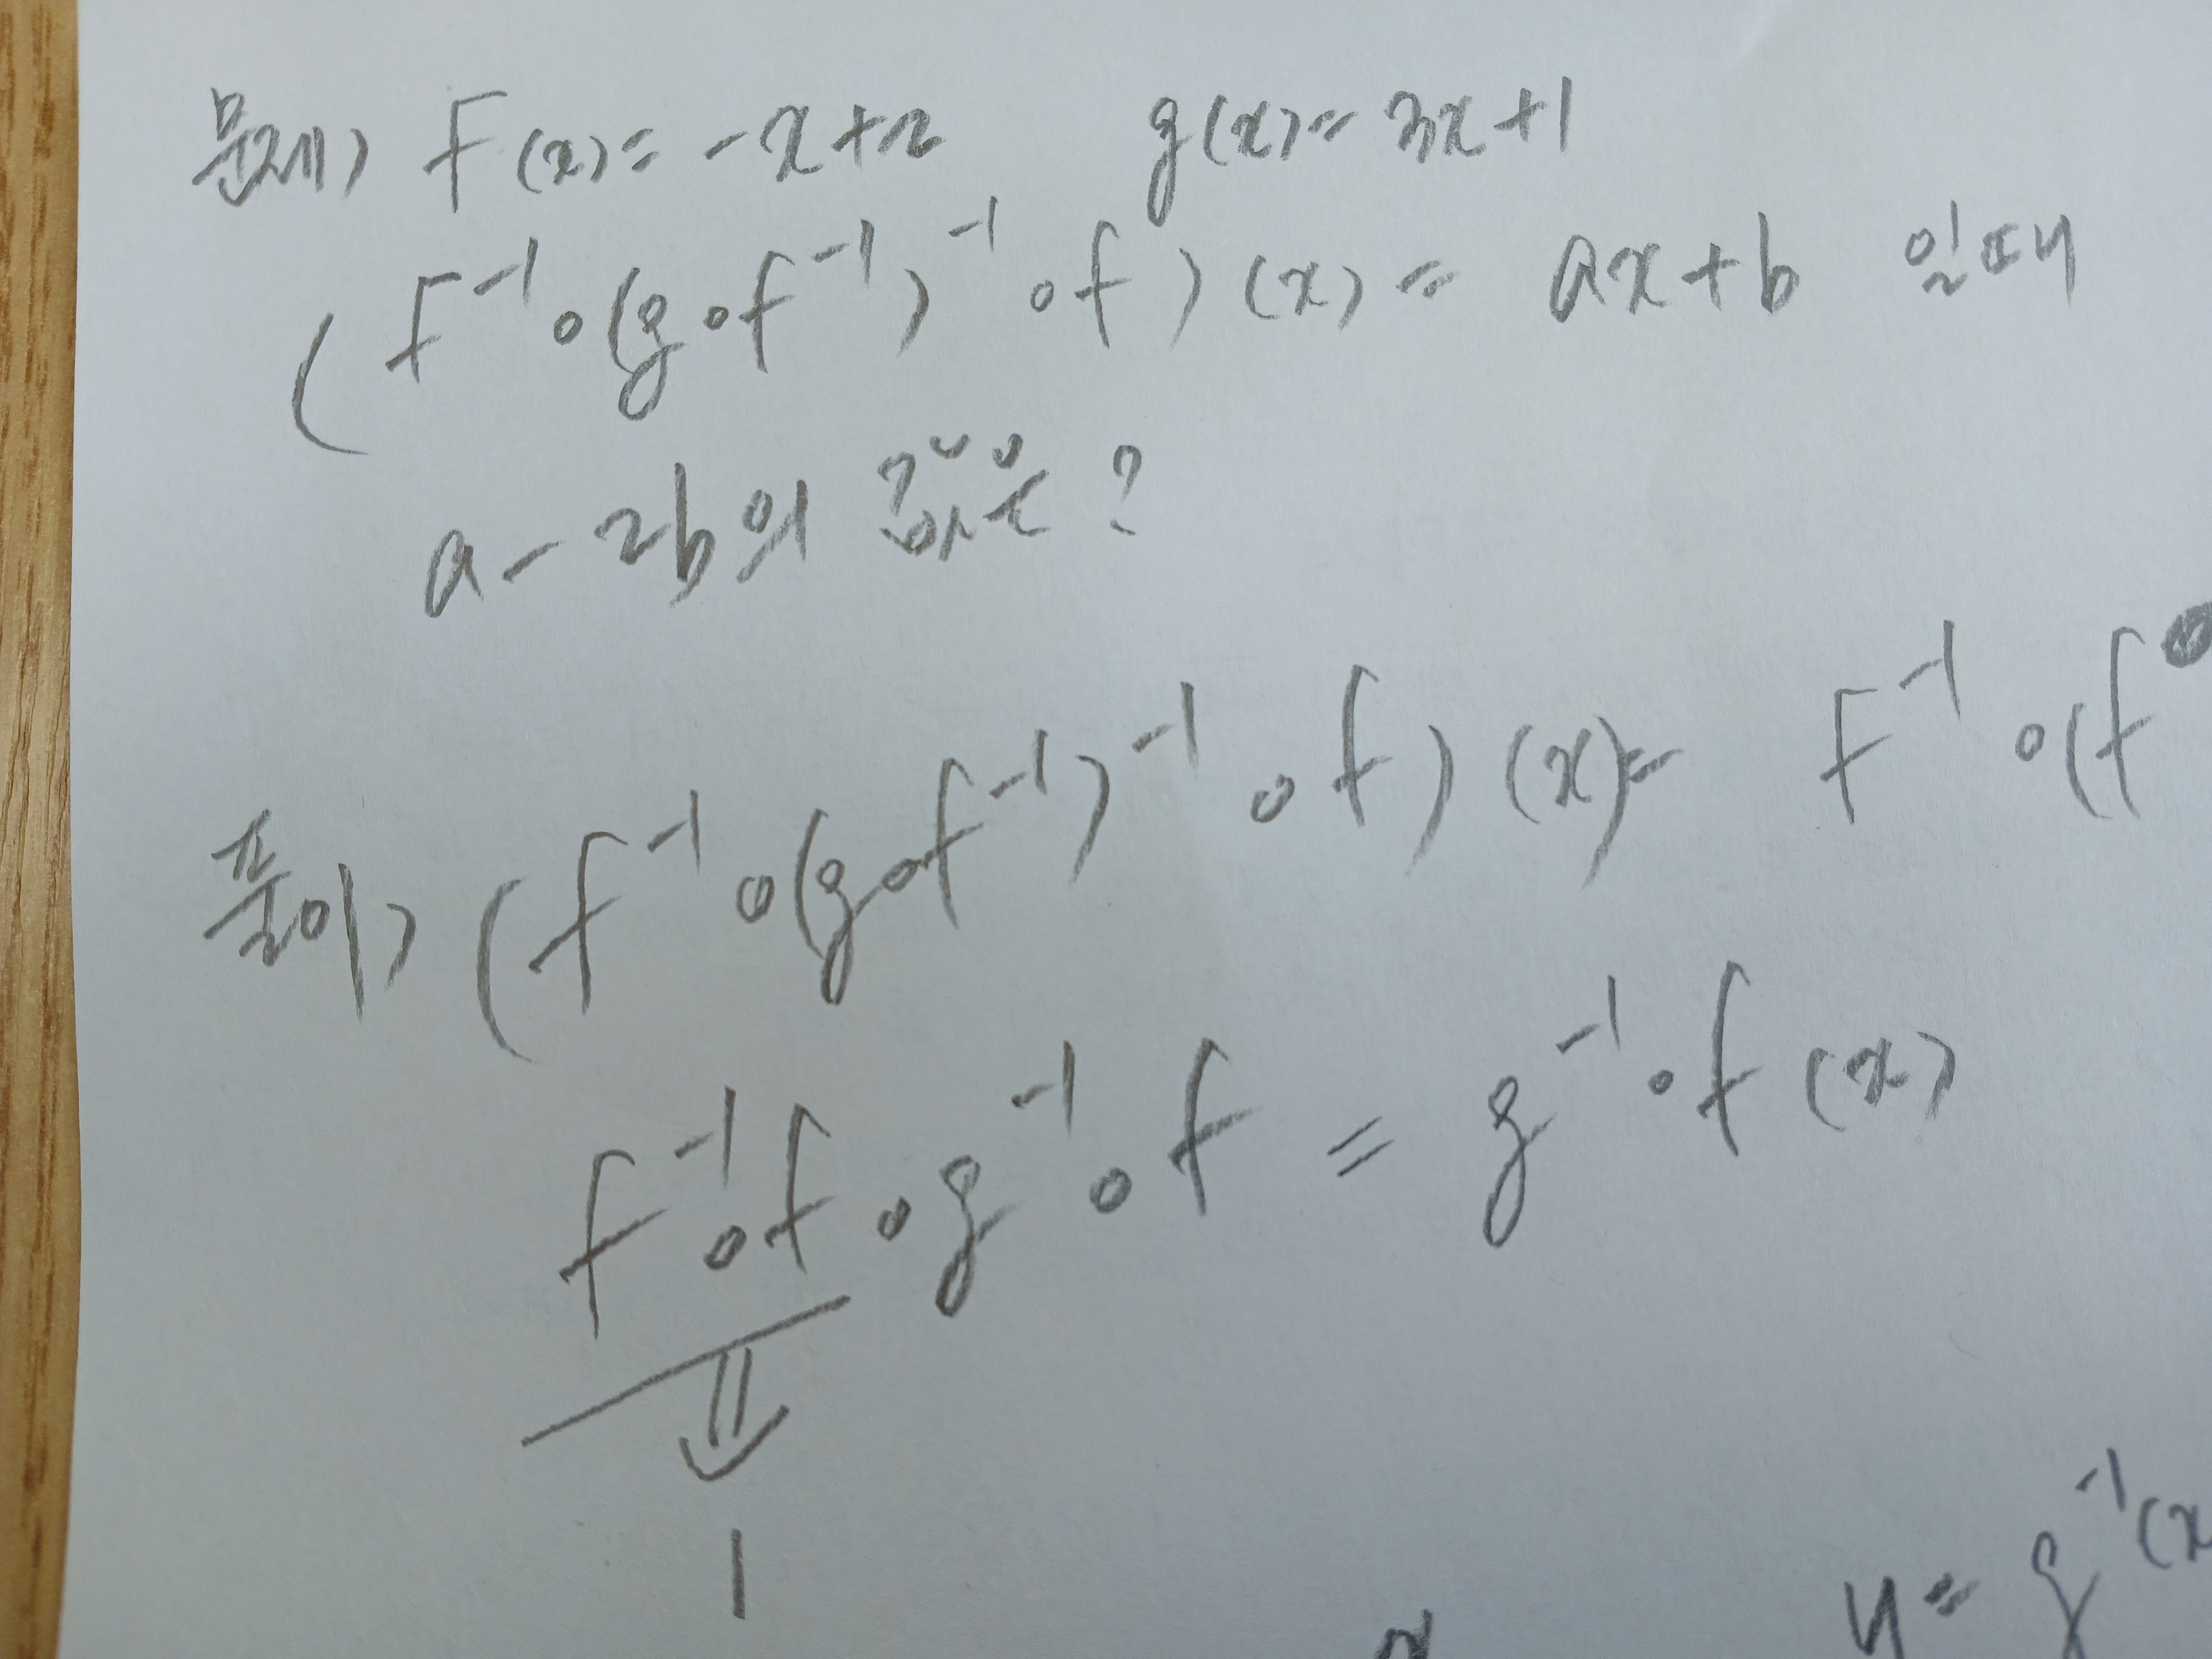 문제) f(x)= -x+2 g(x)= 3x+1
(f⁻¹∘(g∘f⁻¹)⁻¹∘f)(x)= ax+b 일때
a-2b의 값은?
풀이) (f⁻¹∘(g∘f⁻¹)⁻¹∘f)(x)= f⁻¹∘(f
f⁻¹∘f∘g⁻¹∘f = g⁻¹∘f(x)
⇓
1
y= g⁻¹(x